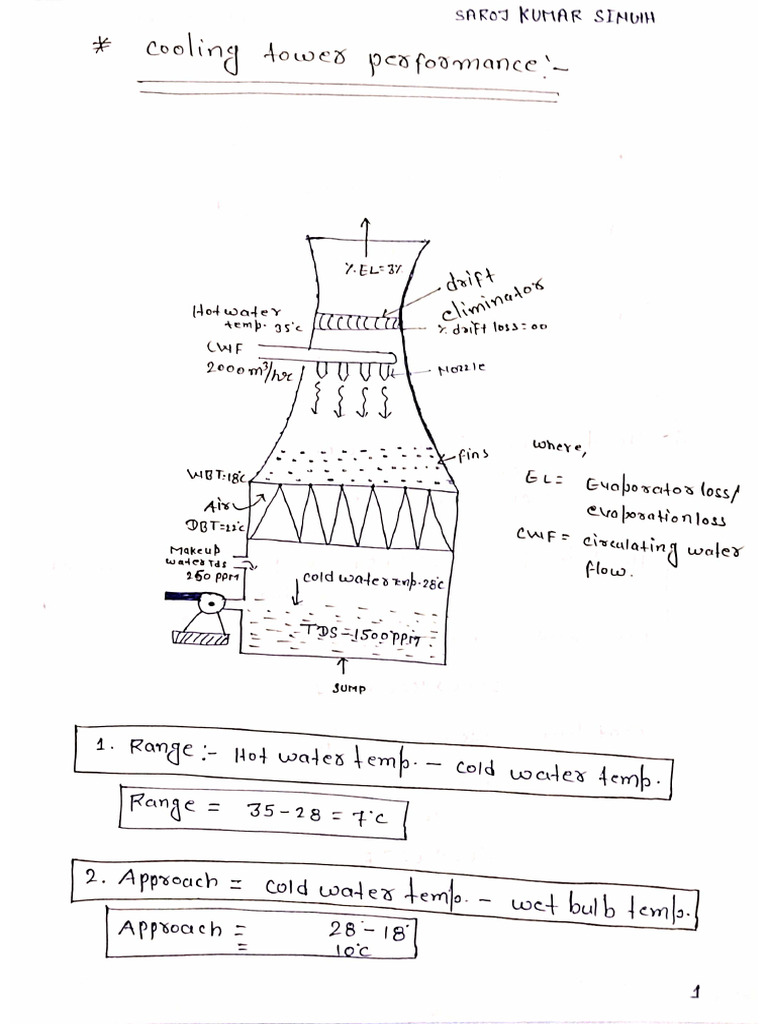 SAROJ KUMAR SINGH
* Cooling tower performance:-
% EL = 3%
drift
eliminator
Hot water
temp. 35°C
% drift loss = 00
CWF
2000 m³/hr
Nozzle
fins
WBT:18°C
Air
DBT=22°C
where,
EL = Evaporator loss/
evaporation loss
CWF = circulating water
flow.
Makeup
water TDS
250 ppm
cold water tmp. 28°C
TDS - 1500 ppm
SUMP
1. Range :- Hot water temp. - cold water temp.
Range = 35 - 28 = 7°C
2. Approach = cold water temp. - wet bulb temp.
Approach = 28° - 18°
= 10°C
1